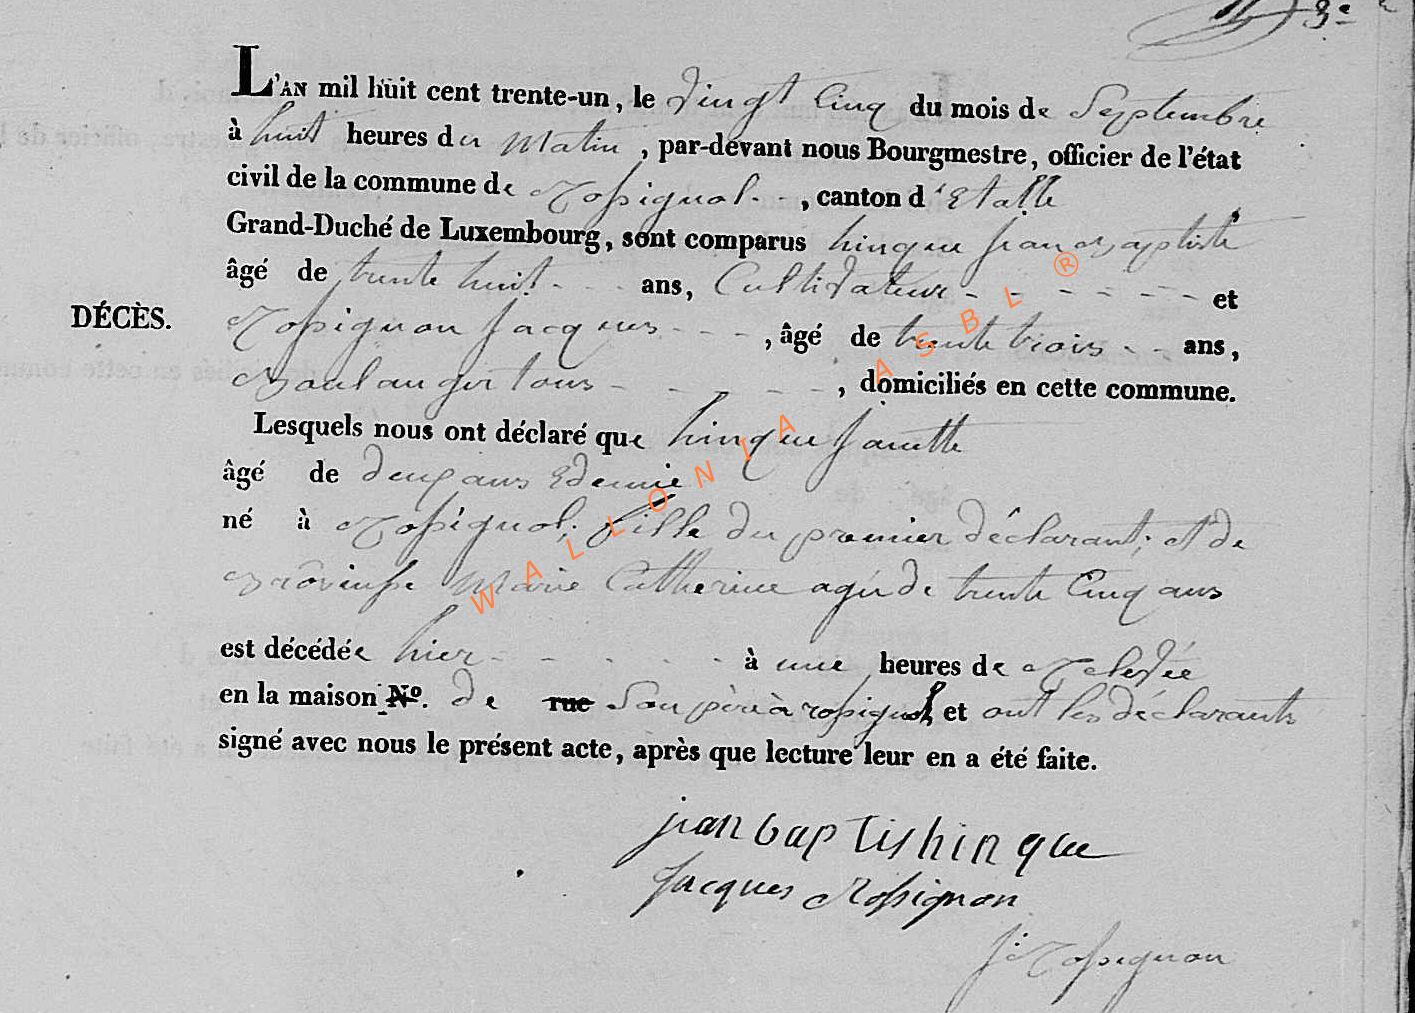 3e
L'AN mil huit cent trente-un, le vingt Cinq du mois de Septembre
à huit heures du Matin, par-devant nous Bourgmestre, officier de l'état
civil de la commune de Rossignol, canton d'Etalle
Grand-Duché de Luxembourg, sont comparus hinque jean Baptiste
âgé de trente huit ans, Cultivateur et
DÉCÈS.
Rossignon jacques, âgé de trente trois ans,
Boulanger tous, domiciliés en cette commune.
Lesquels nous ont déclaré que hinque janette
âgé de deux ans & demie
né à Rossignol, fille du premier déclarant; et de
Marie Catherine agée de trente Cinq ans
est décédée hier à une heures de Relevée
en la maison No. de rue Son père à rossignol et ont les déclarants
signé avec nous le présent acte, après que lecture leur en a été faite.
jean baptis hinque
Jacques Rossignon
J: Rossignon
WALLONIA ASBL ®